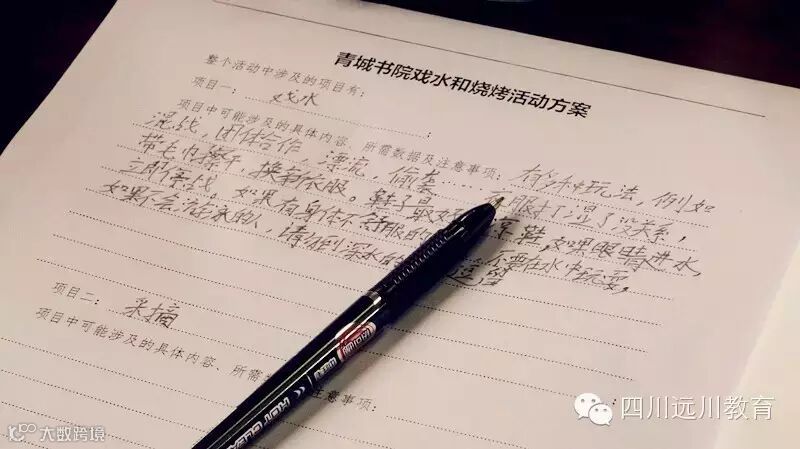 青城书院戏水和烧烤活动方案
整个活动中涉及的项目有:
项目一: 戏水
项目中可能涉及的具体内容、所需数据及注意事项: 有多种玩法,例如
混战,团体合作,漂流,偷袭…… 衣服打湿了没关系,
带毛巾擦干,换新衣服。鞋子最好 凉鞋,如果眼睛进水,
立即停战。如果有身体不舒服的 不要在水中玩耍,
如果不会游泳的人,请勿到深水的
项目二: 采摘
项目中可能涉及的具体内容、所需 注意事项:
四川远川教育
大数跨境